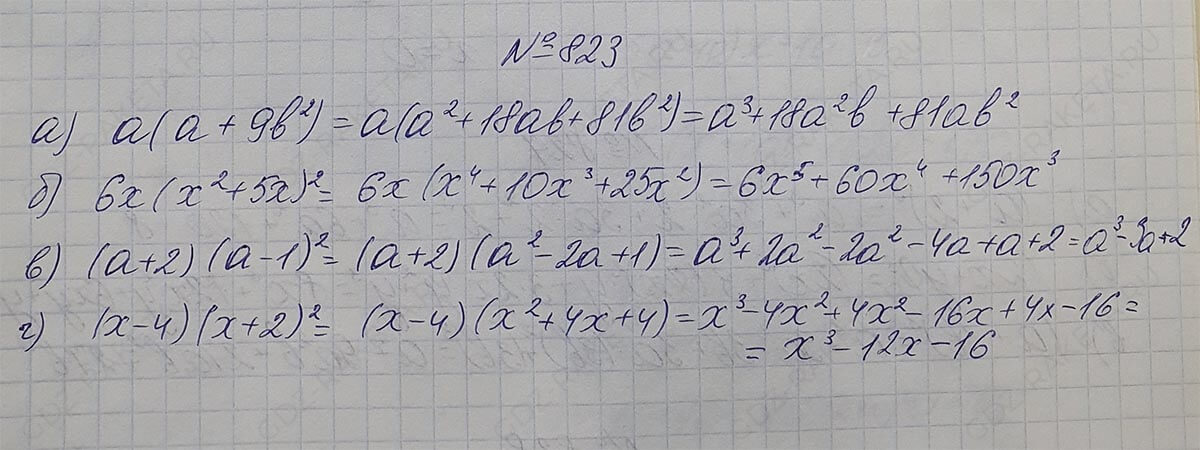 №823
а) a(a+9b²)=a(a²+18ab+81b²)=a³+18a²b+81ab²
б) 6x(x²+5x)²=6x(x⁴+10x³+25x²)=6x⁵+60x⁴+150x³
в) (a+2)(a-1)²=(a+2)(a²-2a+1)=a³+2a²-2a²-4a+a+2=a³-3a+2
г) (x-4)(x+2)²=(x-4)(x²+4x+4)=x³-4x²+4x²-16x+4x-16=
=x³-12x-16